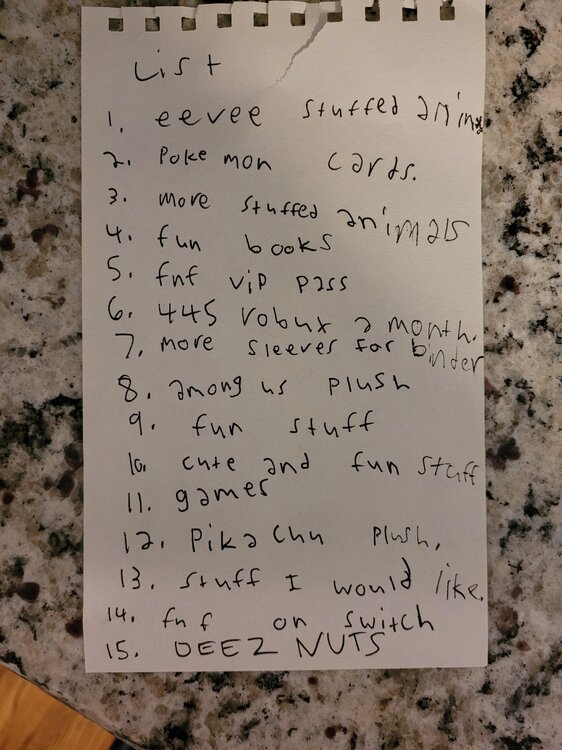 List
1. eevee stuffed anim
2. Pokemon cards.
3. more stuffed animals
4. fun books
5. fnf vip pass
6. 445 robux a month.
7. more sleeves for binder
8. among us plush
9. fun stuff
10. cute and fun stuff
11. games
12. Pikachu plush,
13. stuff I would like.
14. fnf on switch
15. DEEZ NUTS